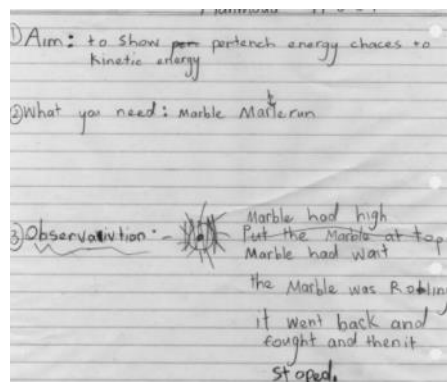 ① Aim: to show pertench energy chaces to
kinetic energy
② What you need: Marble Marle run
③ Observativtion:-
Marble had high
Put the Marble at top
Marble had wait
the Marble was Robling
it went back and
fought and then it
stoped.